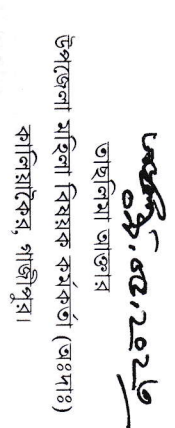 ০১.০২.২০২৬
তাছলিমা আক্তার
উপজেলা মহিলা বিষয়ক কর্মকর্তা (অঃদাঃ)
কালিয়াকৈর, গাজীপুর।